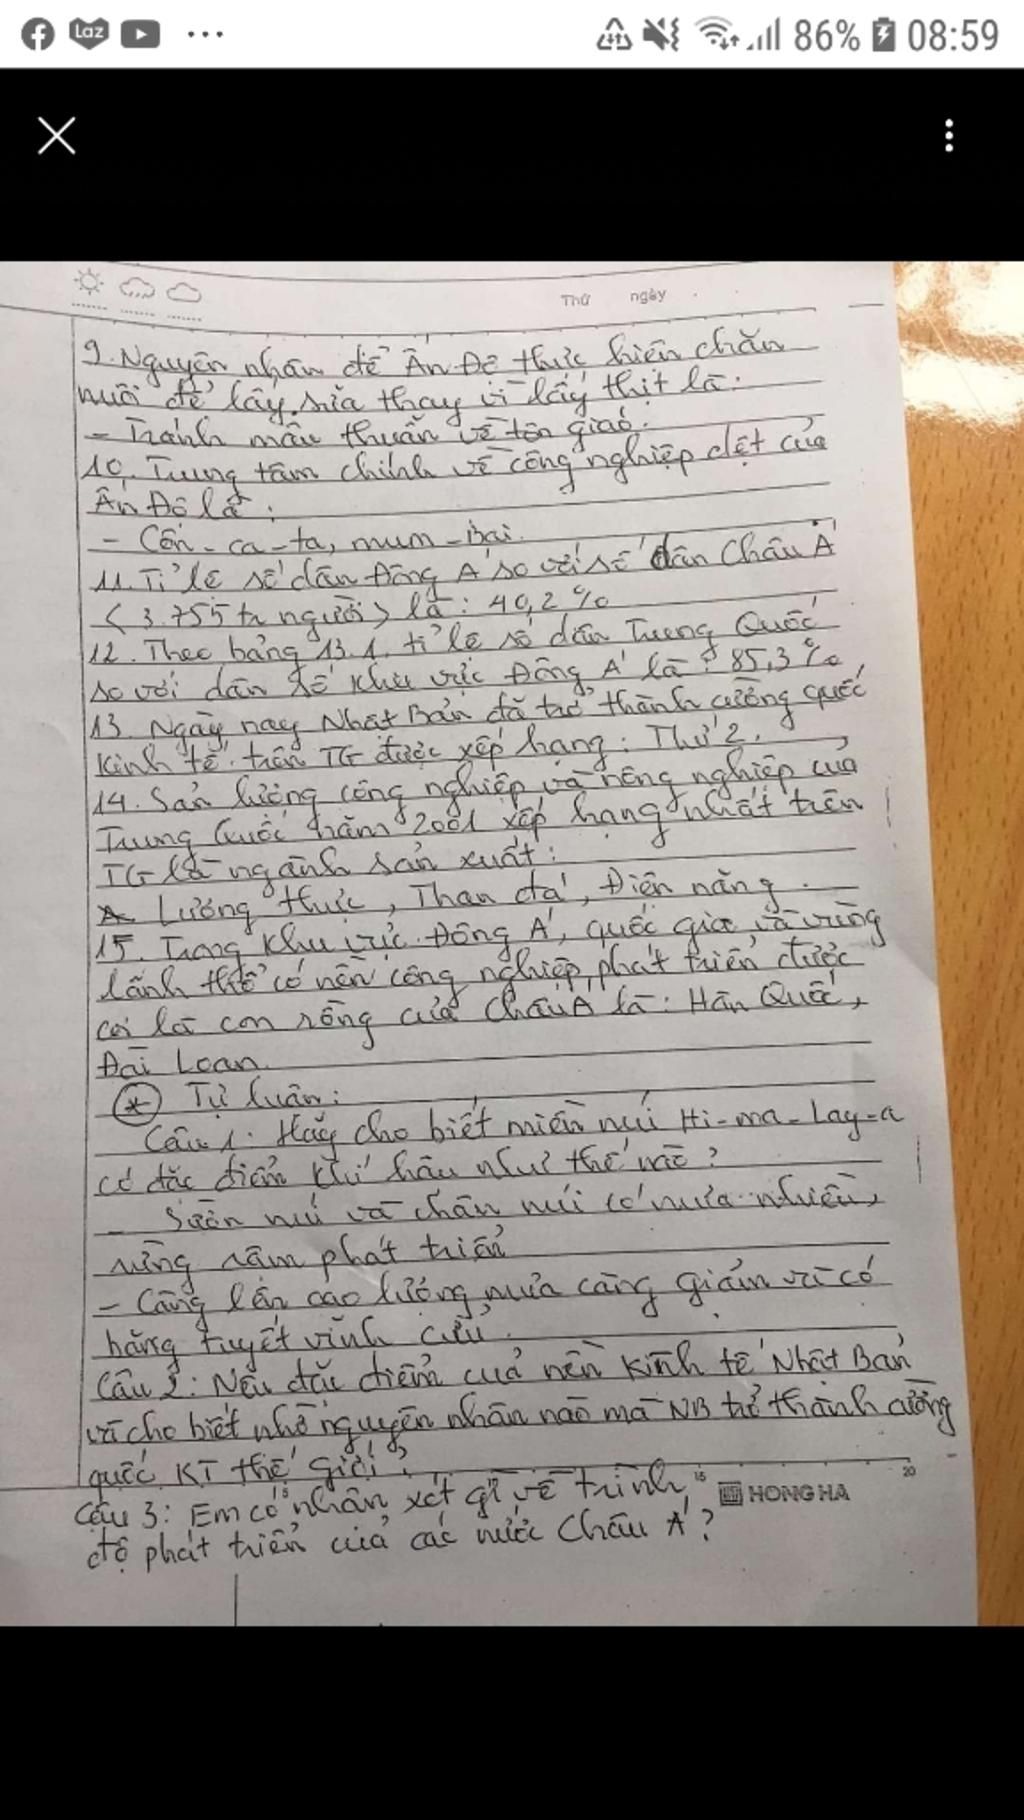 Laz
86%
08:59
Thứ ngày
9. Nguyên nhân để Ấn Độ thực hiện chăn
nuôi để lấy sữa thay vì lấy thịt là:
- Tránh mâu thuẫn về tôn giáo.
10. Trung tâm chính về công nghiệp dệt của
Ấn Độ là:
- Côn-ca-ta, mum-Bai.
11. Tỉ lệ số dân Đông Á so với số dân Châu Á
(3.755 tr người) là: 40,2%
12. Theo bảng 13.1. tỉ lệ số dân Trung Quốc
so với dân số khu vực Đông Á là: 85,3%
13. Ngày nay Nhật Bản đã trở thành cường quốc
Kinh tế trên TG được xếp hạng: Thứ 2.
14. Sản lượng công nghiệp và nông nghiệp của
Trung Quốc năm 2001 xếp hạng nhất trên
TG là ngành sản xuất:
Lương thực, Than đá, Điện năng.
15. Trong khu vực Đông Á, quốc gia và vùng
lãnh thổ có nền công nghiệp phát triển được
coi là con rồng của Châu Á là: Hàn Quốc,
Đài Loan.
* Tự luận:
Câu 1: Hãy cho biết miền núi Hi-ma-lay-a
có đặc điểm khí hậu như thế nào?
- Sườn núi và chân núi có mưa nhiều,
rừng rậm phát triển
- Càng lên cao lượng mưa càng giảm và có
băng tuyết vĩnh cửu.
Câu 2: Nêu đặc điểm của nền kinh tế Nhật Bản
và cho biết nhờ nguyên nhân nào mà NB trở thành cường
quốc KT thế giới?
5 15 20
HONG HA
Câu 3: Em có nhận xét gì về trình
độ phát triển của các nước Châu Á?